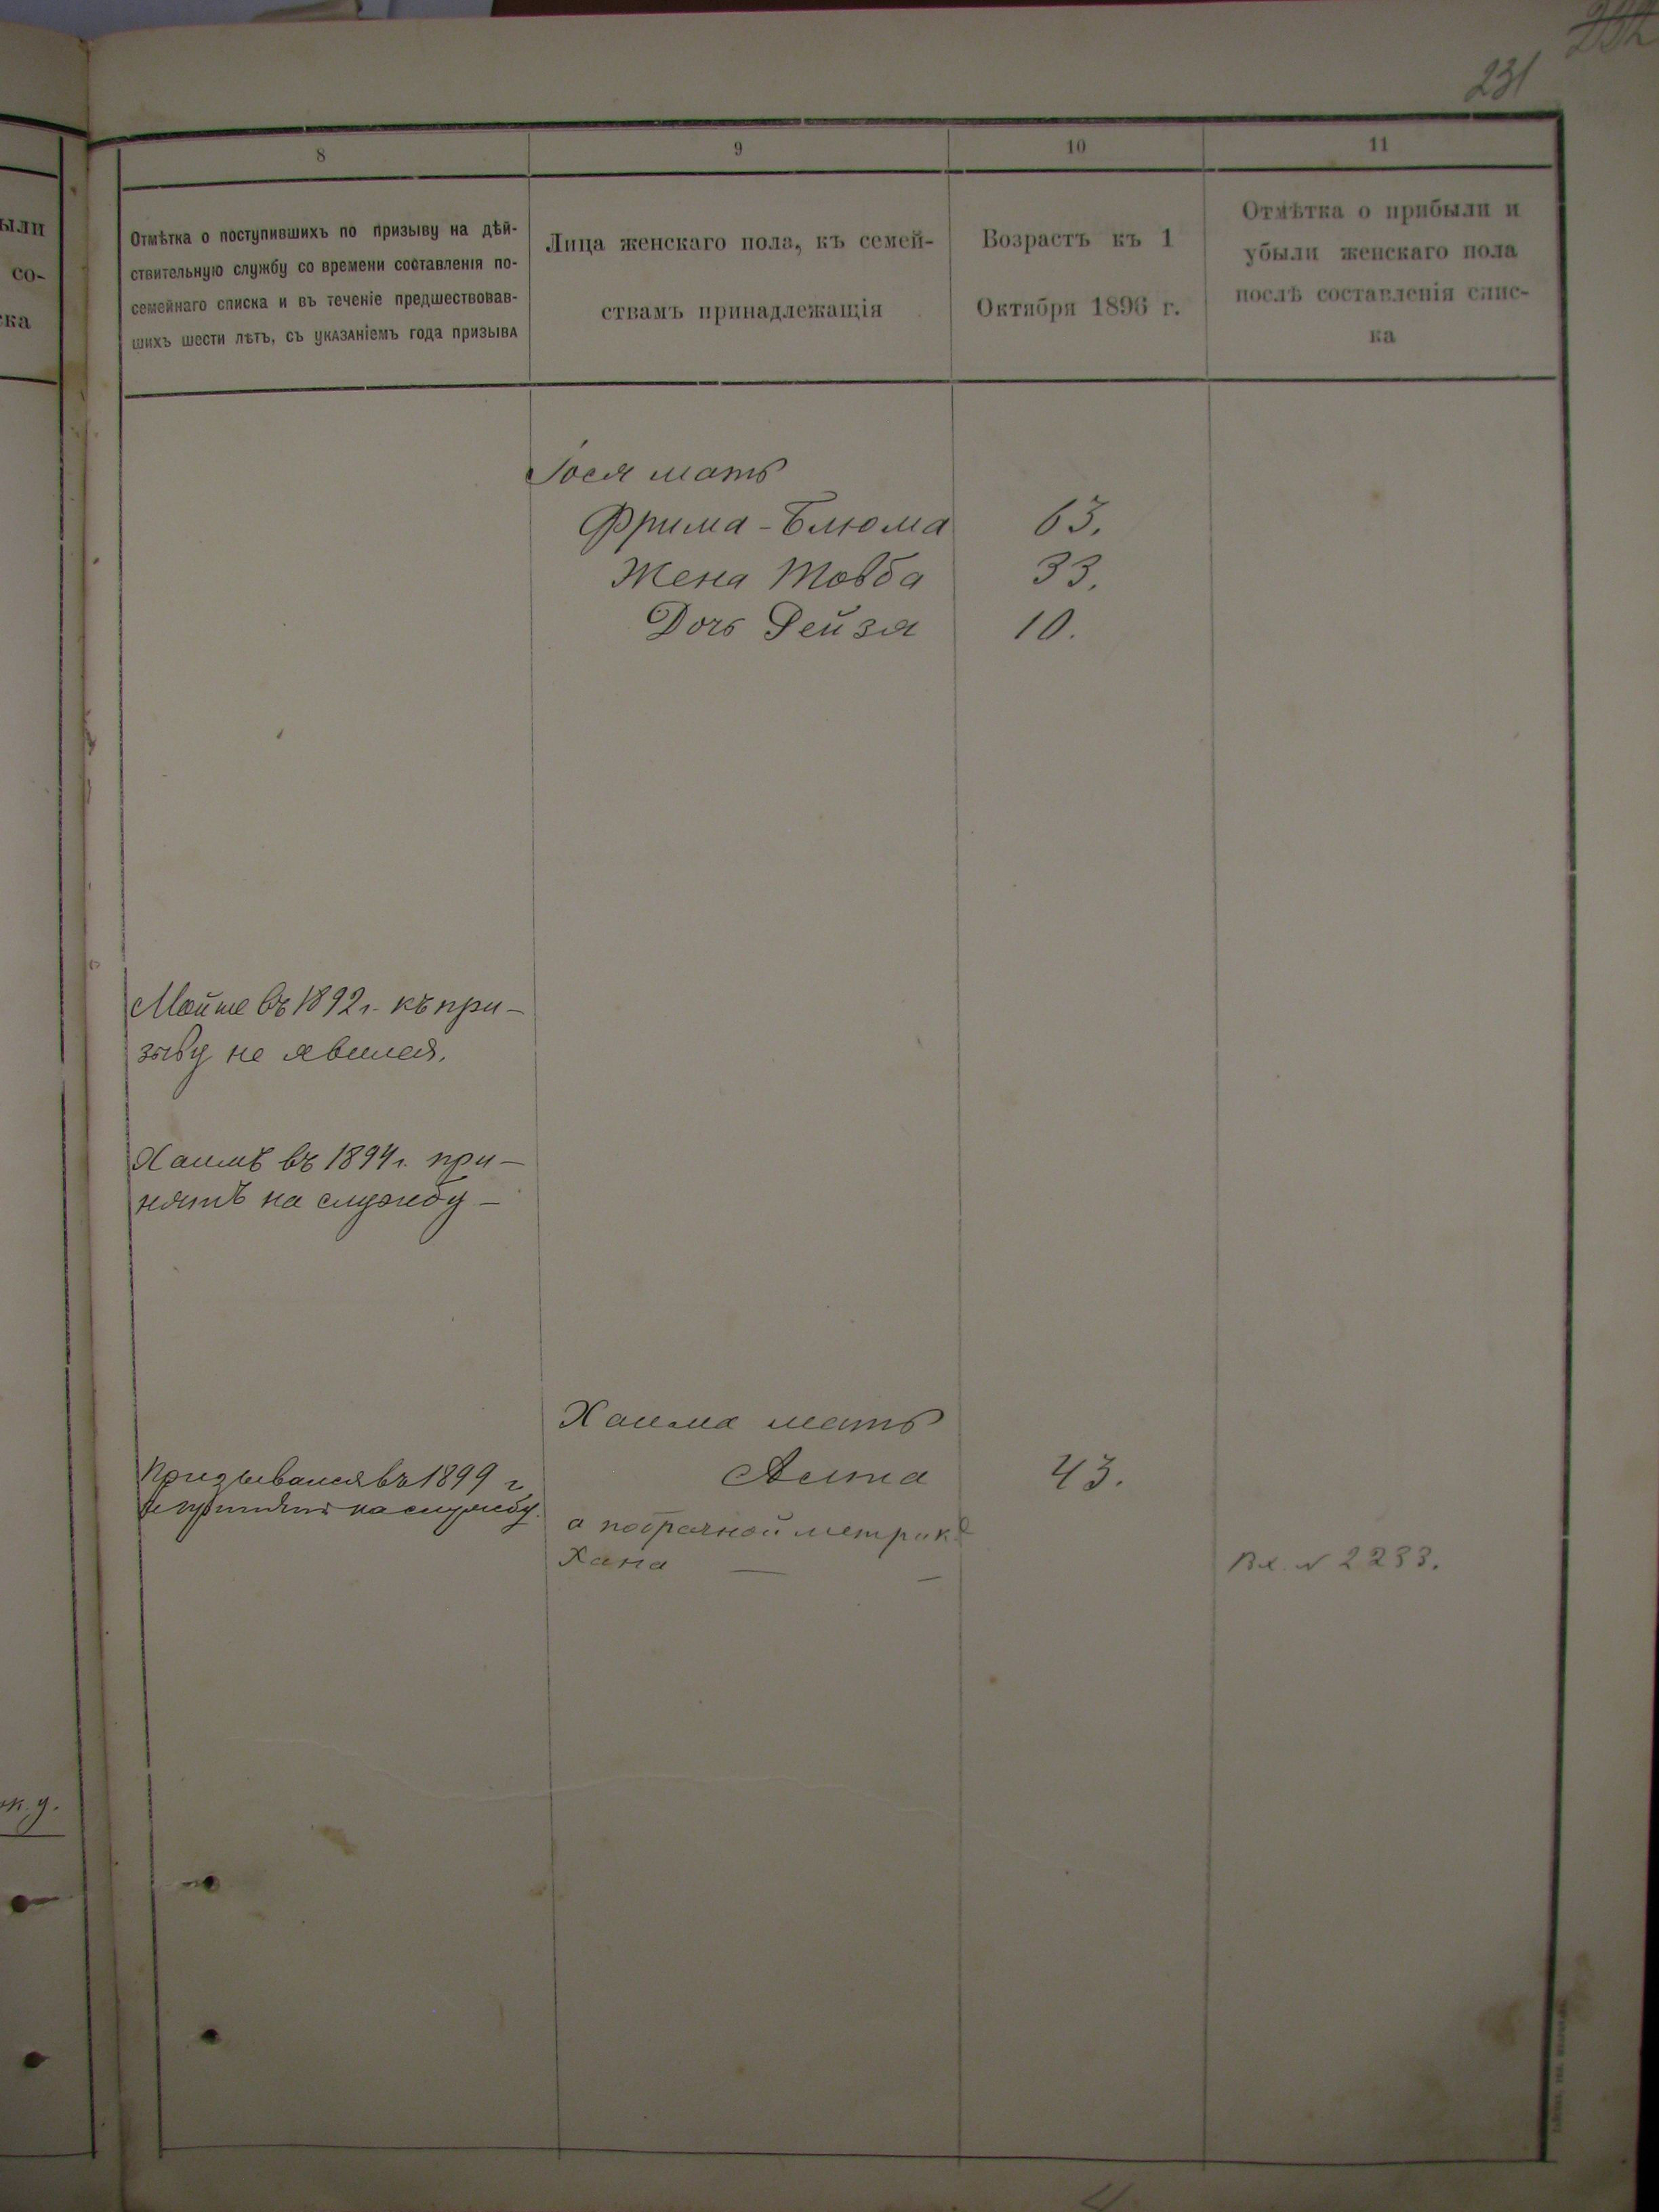 231
8
9
10
11
Отмѣтка о поступившихъ по призыву на дѣй-
ствительную службу со времени составленія по-
семейнаго списка и въ теченіе предшествовав-
шихъ шести лѣтъ, съ указаніемъ года призыва
Лица женскаго пола, къ семей-
ствамъ принадлежащія
Возрастъ къ 1
Октября 1896 г.
Отмѣтка о прибыли и
убыли женскаго пола
послѣ составленія спис-
ка
ыли
со-
ка
Іося мать
Фрима-Блюма 63.
Жена Товба 33.
Дочь Рейзя 10.
Мойше въ 1892 г. къ при-
зыву не явился.
Хаимъ въ 1894 г. при-
нятъ на службу -
Хаима мать
Асна 43.
Призывался въ 1899 г
и принятъ на службу.
а по брачной метрикѣ
Хана
Вх. № 2283.